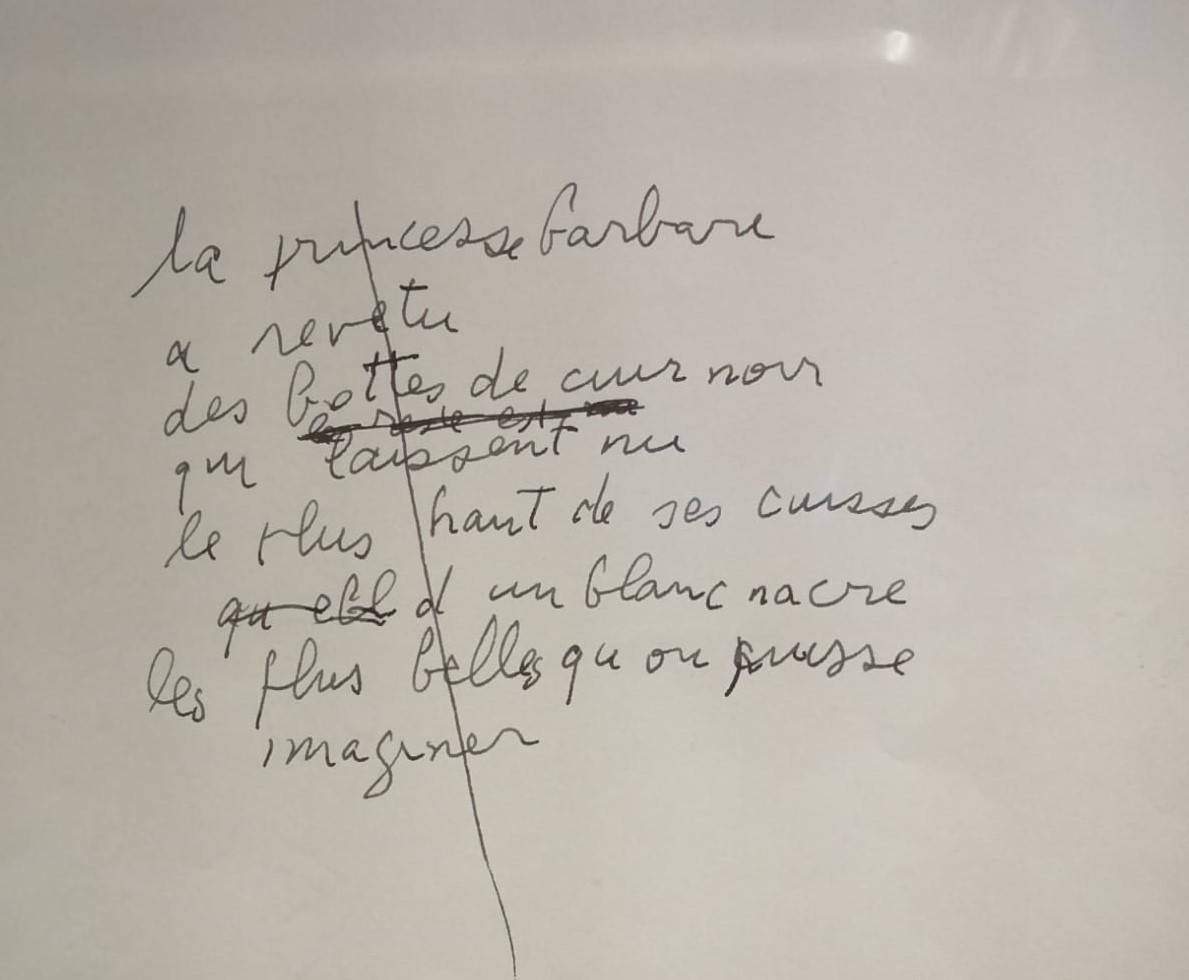 la princesse barbare
a revetu
des bottes de cuir noir
qui laissent nu
le plus haut de ses cuisses
d un blanc nacre
les plus belles qu on puisse
imaginer